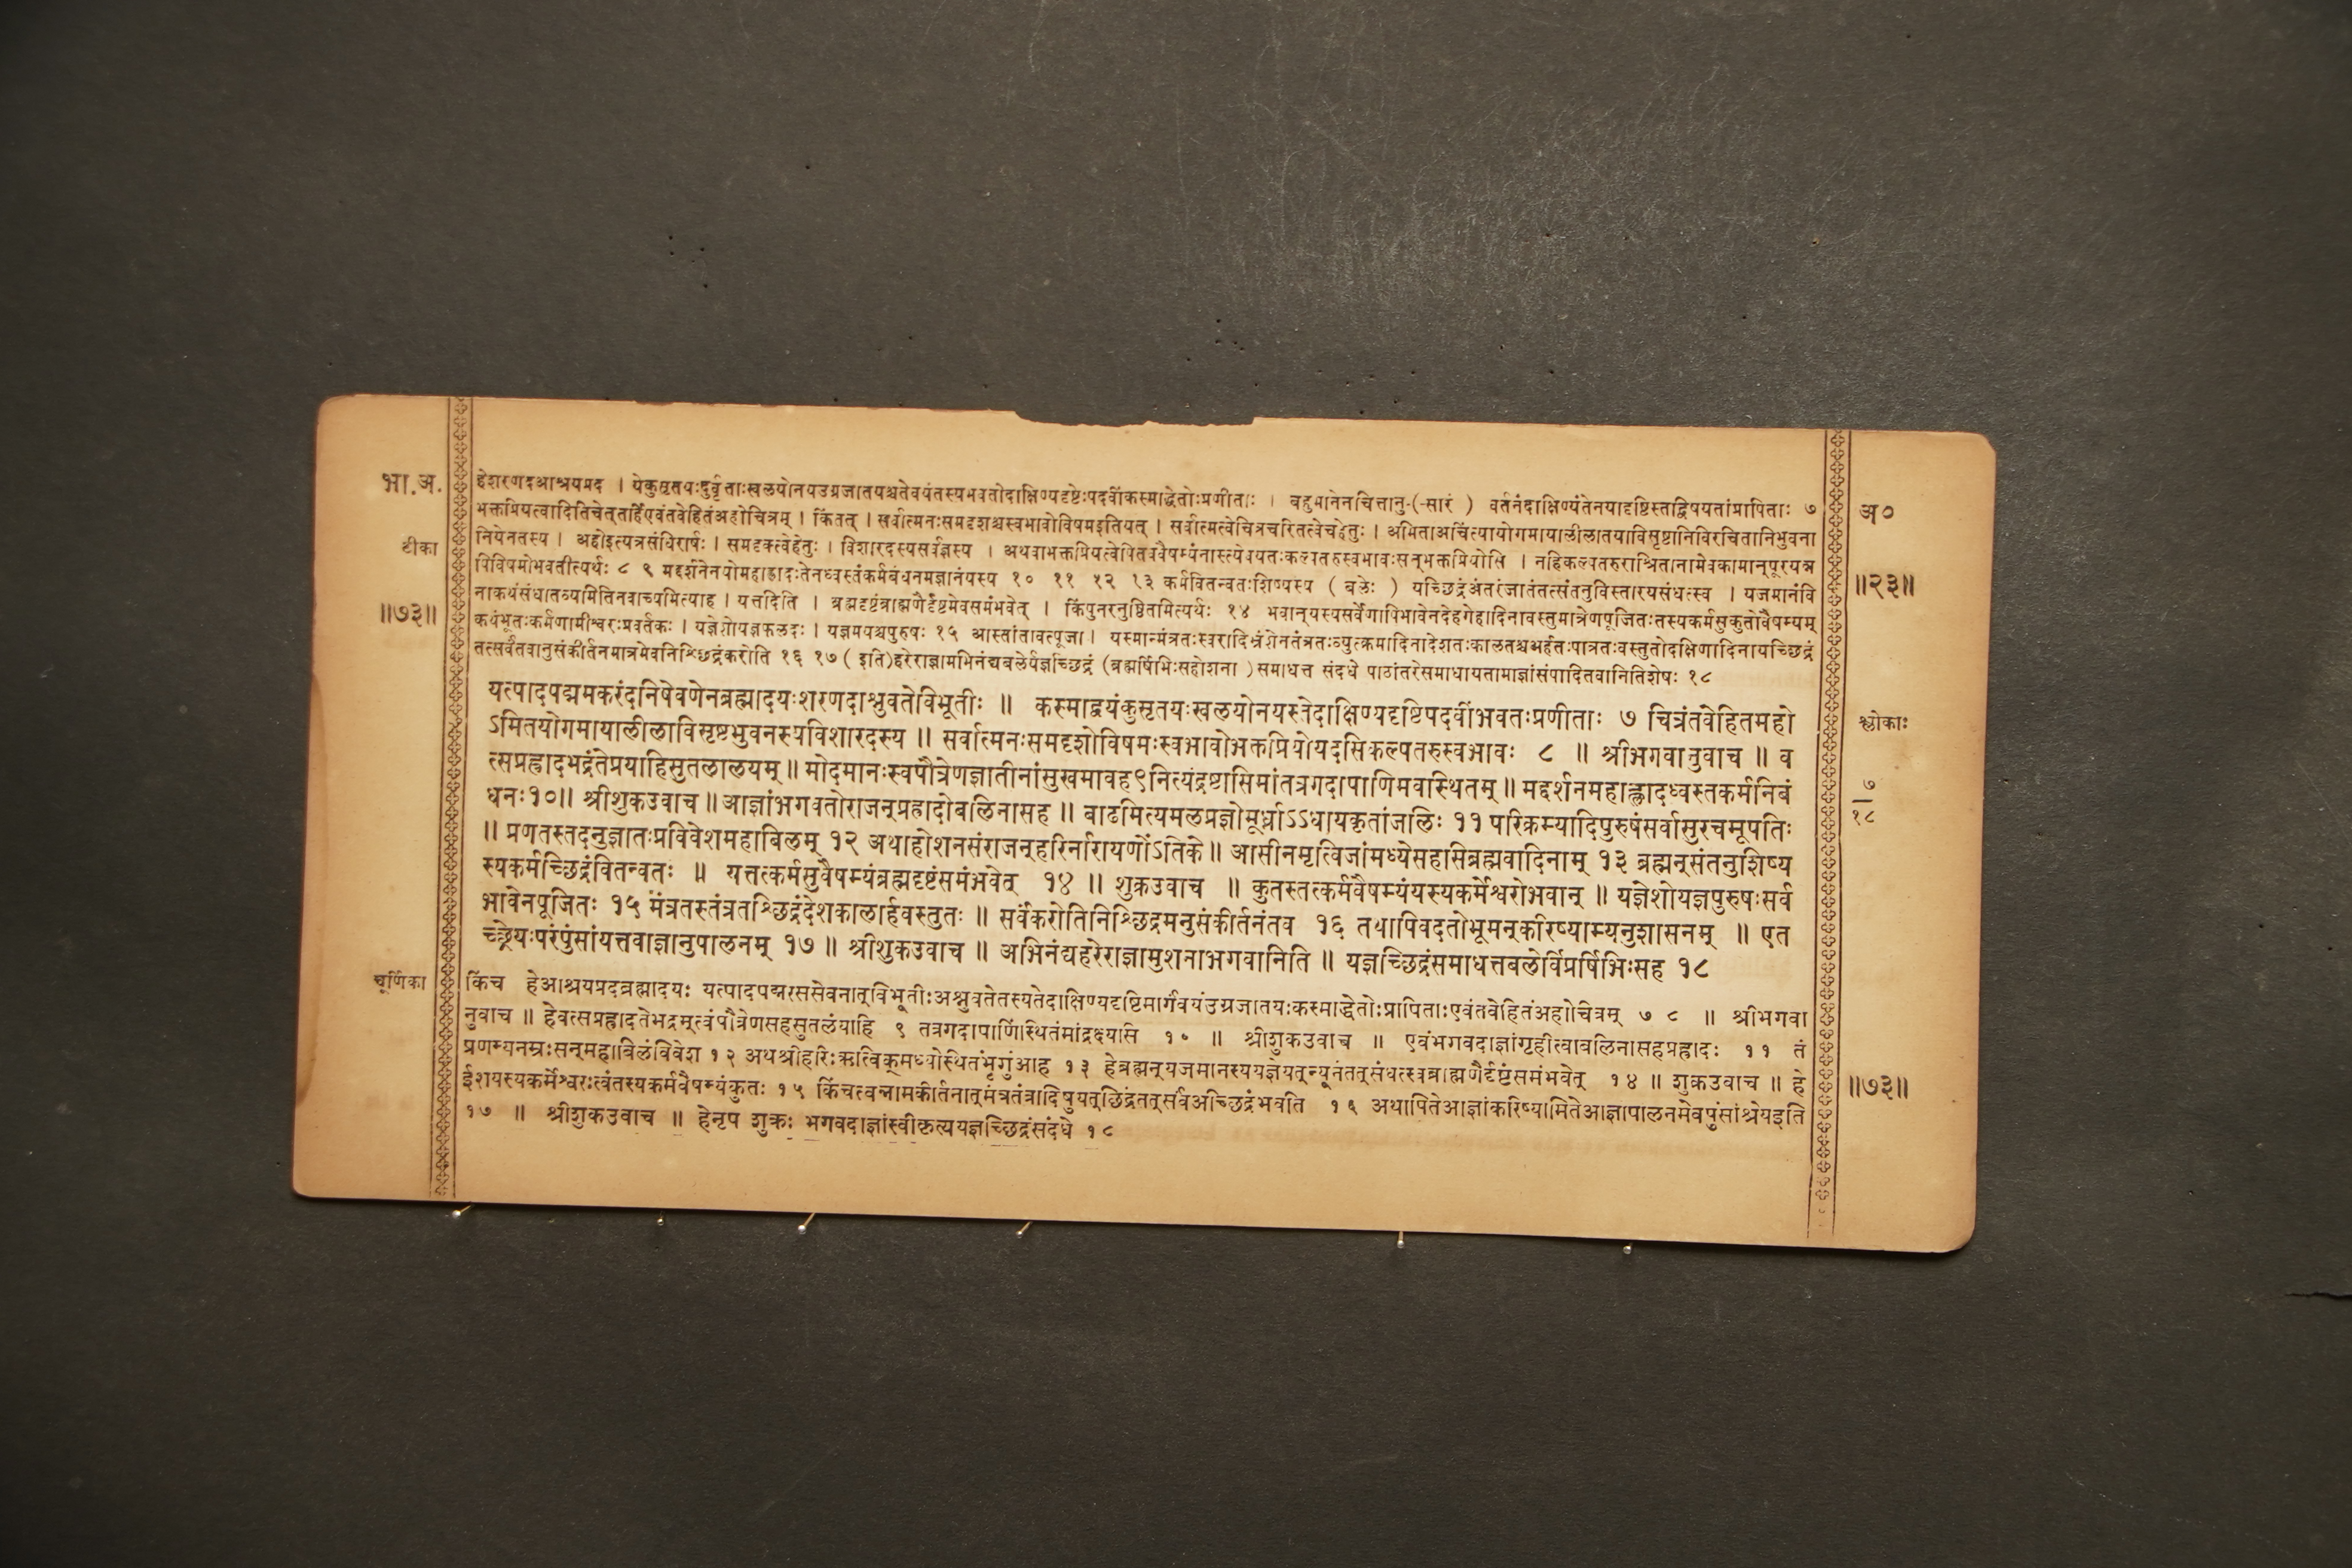 भा.अ.
टीका
॥७३॥
हेशरणदआश्रयप्रद । येकुसृतयःदुर्वृत्ताःखलयोनयउग्रजातयश्चतेवयंतस्यभवतोदाक्षिण्यदृष्टेःपदवींकस्माद्धेतोःप्रणीताः । बहुमानेनचित्तानु-(-सारं ) वर्तनंदाक्षिण्यंतेनयादृष्टिस्तद्विषयतांप्रापिताः ७
भक्तप्रियत्वादितिचेत्तर्हिएवंतवेहितंअहोचित्रम् । किंतत् । सर्वात्मनःसमदृशश्चस्वभावोविषमइतियत् । सर्वात्मत्वेचित्रचरितत्वेचहेतुः । अमिताअचिंत्यायोगमायालीलातयाविसृष्टानिविरचितानिभुवना
नियेनतस्य । अहोइत्यत्रसंधिरार्षः । समदृक्त्वेहेतुः । विशारदस्यसर्वज्ञस्य । अथवाभक्तप्रियत्वेपितववैषम्यंनास्त्येवयतःकल्पतरुस्वभावःसन्भक्तप्रियोसि । नहिकल्पतरुराश्रितानामेवकामान्पूरयन्न
पिविषमोभवतीत्यर्थः ८ ९ मद्दर्शनेनयोमहाह्लादःतेनध्वस्तंकर्मबंधनमज्ञानंयस्य १० ११ १२ १३ कर्मवितन्वतःशिष्यस्य ( बलेः ) यच्छिद्रंअंतरंजातंतत्संतनुविस्तारयसंधत्स्व । यजमानंवि
नाकथंसंधातव्यमितिनवाच्यमित्याह । यत्तदिति । ब्रह्मदृष्टंब्राह्मणैर्दृष्टमेवसमंभवेत् । किंपुनरनुष्ठितमित्यर्थः १४ भवान्यस्यसर्वेणापिभावेनदेहगेहादिनावस्तुमात्रेणपूजितःतस्यकर्मसुकुतोवैषम्यम्
कथंभूतःकर्मणामीश्वरःप्रवर्तकः । यज्ञेशोयज्ञफलदः । यज्ञमयश्चपुरुषः १५ आस्तांतावत्पूजा। यस्मान्मंत्रतःस्वरादिभ्रंशेनतंत्रतःव्युत्क्रमादिनादेशतःकालतश्चअर्हतःपात्रतःवस्तुतोदक्षिणादिनायच्छिद्रं
तत्सर्वंतवानुसंकीर्तनमात्रमेवनिश्छिद्रंकरोति १६ १७ ( इति)हरेराज्ञामभिनंद्यबलेर्यज्ञच्छिद्रं (ब्रह्मर्षिभिःसहोशना ) समाधत्त संदधे पाठांतरेसमाधायतामाज्ञांसंपादितवानितिशेषः १८
यत्पादपद्ममकरंदनिषेवणेनब्रह्मादयःशरणदाश्नुवतेविभूतीः ॥ कस्माद्वयंकुसृतयःखलयोनयस्तेदाक्षिण्यदृष्टिपदवींभवतःप्रणीताः ७ चित्रंतवेहितमहो
ऽमितयोगमायालीलाविसृष्टभुवनस्यविशारदस्य ॥ सर्वात्मनःसमदृशोविषमःस्वभावोभक्तप्रियोयदसिकल्पतरुस्वभावः ८ ॥ श्रीभगवानुवाच ॥ व
त्सप्रह्रादभद्रंतेप्रयाहिसुतलालयम् ॥ मोदमानःस्वपौत्रेणज्ञातीनांसुखमावह९नित्यंद्रष्टासिमांतत्रगदापाणिमवस्थितम् ॥ मद्दर्शनमहाह्लादध्वस्तकर्मनिबं
धनः१०॥ श्रीशुकउवाच ॥ आज्ञांभगवतोराजन्प्रह्रादोबलिनासह ॥ बाढमित्यमलप्रज्ञोमूर्ध्न्याऽऽधायकृतांजलिः ११ परिक्रम्यादिपुरुषंसर्वासुरचमूपतिः
॥ प्रणतस्तदनुज्ञातःप्रविवेशमहाबिलम् १२ अथाहोशनसंराजन्हरिर्नारायणोंऽतिके ॥ आसीनमृत्विजांमध्येसहसिब्रह्मवादिनाम् १३ ब्रह्मन्संतनुशिष्य
स्यकर्मच्छिद्रंवितन्वतः ॥ यत्तत्कर्मसुवैषम्यंब्रह्मदृष्टंसमंभवेत् १४ ॥ शुक्रउवाच ॥ कुतस्तत्कर्मवैषम्यंयस्यकर्मेश्वरोभवान् ॥ यज्ञेशोयज्ञपुरुषःसर्व
भावेनपूजितः १५ मंत्रतस्तंत्रतश्छिद्रंदेशकालार्हवस्तुतः ॥ सर्वंकरोतिनिश्छिद्रमनुसंकीर्तनंतव १६ तथापिवदतोभूमन्करिष्याम्यनुशासनम् ॥ एत
च्छ्रेयःपरंपुंसांयत्तवाज्ञानुपालनम् १७ ॥ श्रीशुकउवाच ॥ अभिनंद्यहरेराज्ञामुशनाभगवानिति ॥ यज्ञच्छिद्रंसमाधत्तबलेर्विप्रर्षिभिःसह १८
चूर्णिका
किंच हेआश्रयप्रदब्रह्मादयः यत्पादपद्मरससेवनात्विभूतीःअश्नुवतेतस्यतेदाक्षिण्यदृष्टिमार्गंवयंउग्रजातयःकस्माद्धेतोःप्रापिताःएवंतवेहितंअहोचित्रम् ७ ८ ॥ श्रीभगवा
नुवाच ॥ हेवत्सप्रह्रादतेभद्रम्त्वंपौत्रेणसहसुतलंयाहि ९ तत्रगदापाणिंस्थितंमांद्रक्ष्यासि १० ॥ श्रीशुकउवाच ॥ एवंभगवदाज्ञांगृहीत्वाबलिनासहप्रह्रादः ११ तं
प्रणम्यनम्रःसन्महाबिलंविवेश १२ अथश्रीहरिःऋत्विक्मध्येस्थितंभृगुंआह १३ हेब्रह्मन्यजमानस्ययज्ञेयत्न्यूनंतत्संधत्स्वब्राह्मणैर्दृष्टंसमंभवेत् १४ ॥ शुक्रउवाच ॥ हे
ईशयस्यकर्मेश्वरःत्वंतस्यकर्मवैषम्यंकुतः १५ किंचत्वन्नामकीर्तनात्मंत्रतंत्रादिषुयत्छिद्रंतत्सर्वंअच्छिद्रंभवति १६ अथापितेआज्ञांकरिष्यामितेआज्ञापालनमेवपुंसांश्रेयइति
१७ ॥ श्रीशुकउवाच ॥ हेनृप शुक्रः भगवदाज्ञांस्वीकृत्ययज्ञच्छिद्रंसंदधे १८
अ०
॥२३॥
श्लोकाः
७
१८
॥७३॥